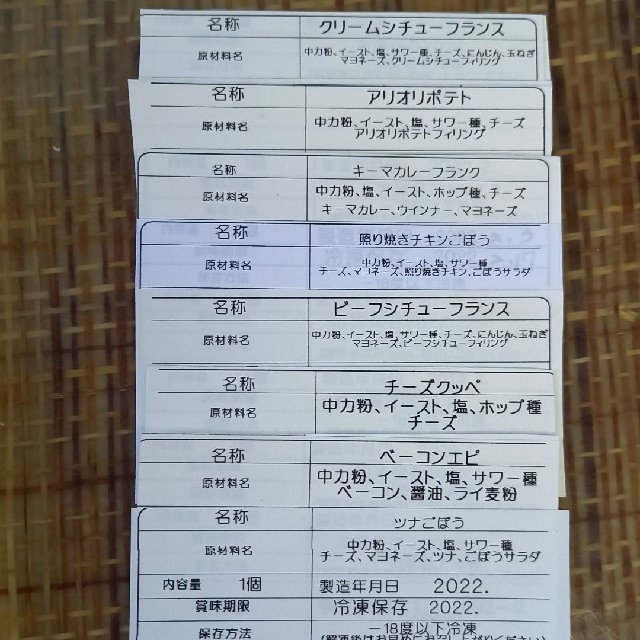 名称 クリームシチューフランス
原材料名 中力粉、イースト、塩、サワー種、チーズ、にんじん、玉ねぎ
マヨネーズ、クリームシチューフィリング
名称 アリオリポテト
原材料名 中力粉、イースト、塩、サワー種、チーズ
アリオリポテトフィリング
名称 キーマカレーフランク
原材料名 中力粉、塩、イースト、ホップ種、チーズ
キーマカレー、ウインナー、マヨネーズ
名称 照り焼きチキンごぼう
原材料名 中力粉、イースト、塩、サワー種
チーズ、マヨネーズ、照り焼きチキン、ごぼうサラダ
名称 ビーフシチューフランス
原材料名 中力粉、イースト、塩、サワー種、チーズ、にんじん、玉ねぎ
マヨネーズ、ビーフシチューフィリング
名称 チーズクッペ
原材料名 中力粉、イースト、塩、ホップ種
チーズ
名称 ベーコンエピ
原材料名 中力粉、イースト、塩、サワー種
ベーコン、醤油、ライ麦粉
名称 ツナごぼう
原材料名 中力粉、イースト、塩、サワー種
チーズ、マヨネーズ、ツナ、ごぼうサラダ
内容量 1個 製造年月日 2022.
賞味期限 冷凍保存 2022.
保存方法 －18度以下冷凍